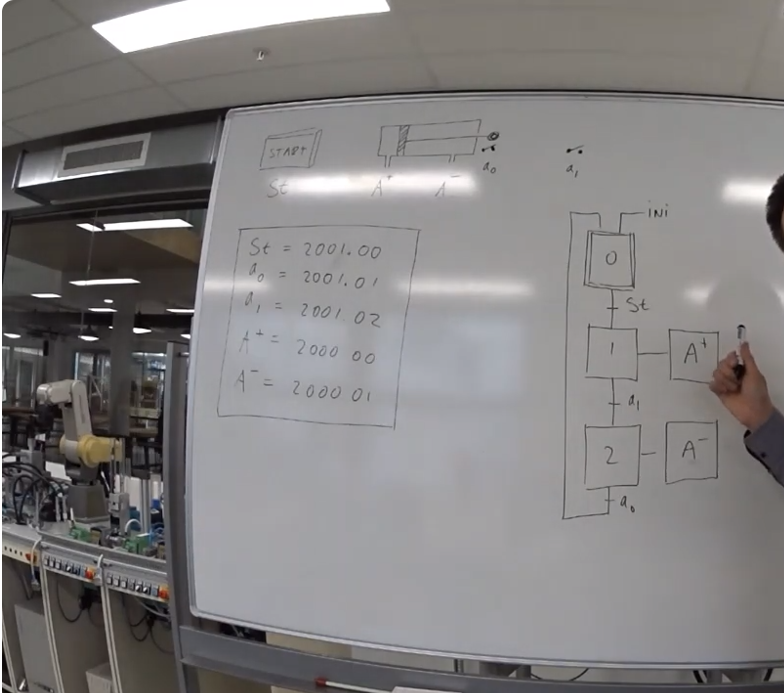 START
St
A⁺
A⁻
a₀
a₁
St = 2001.00
a₀ = 2001.01
a₁ = 2001 02
A⁺ = 2000 00
A⁻ = 2000 01
ini
0
St
1
A⁺
a₁
2
A⁻
a₀